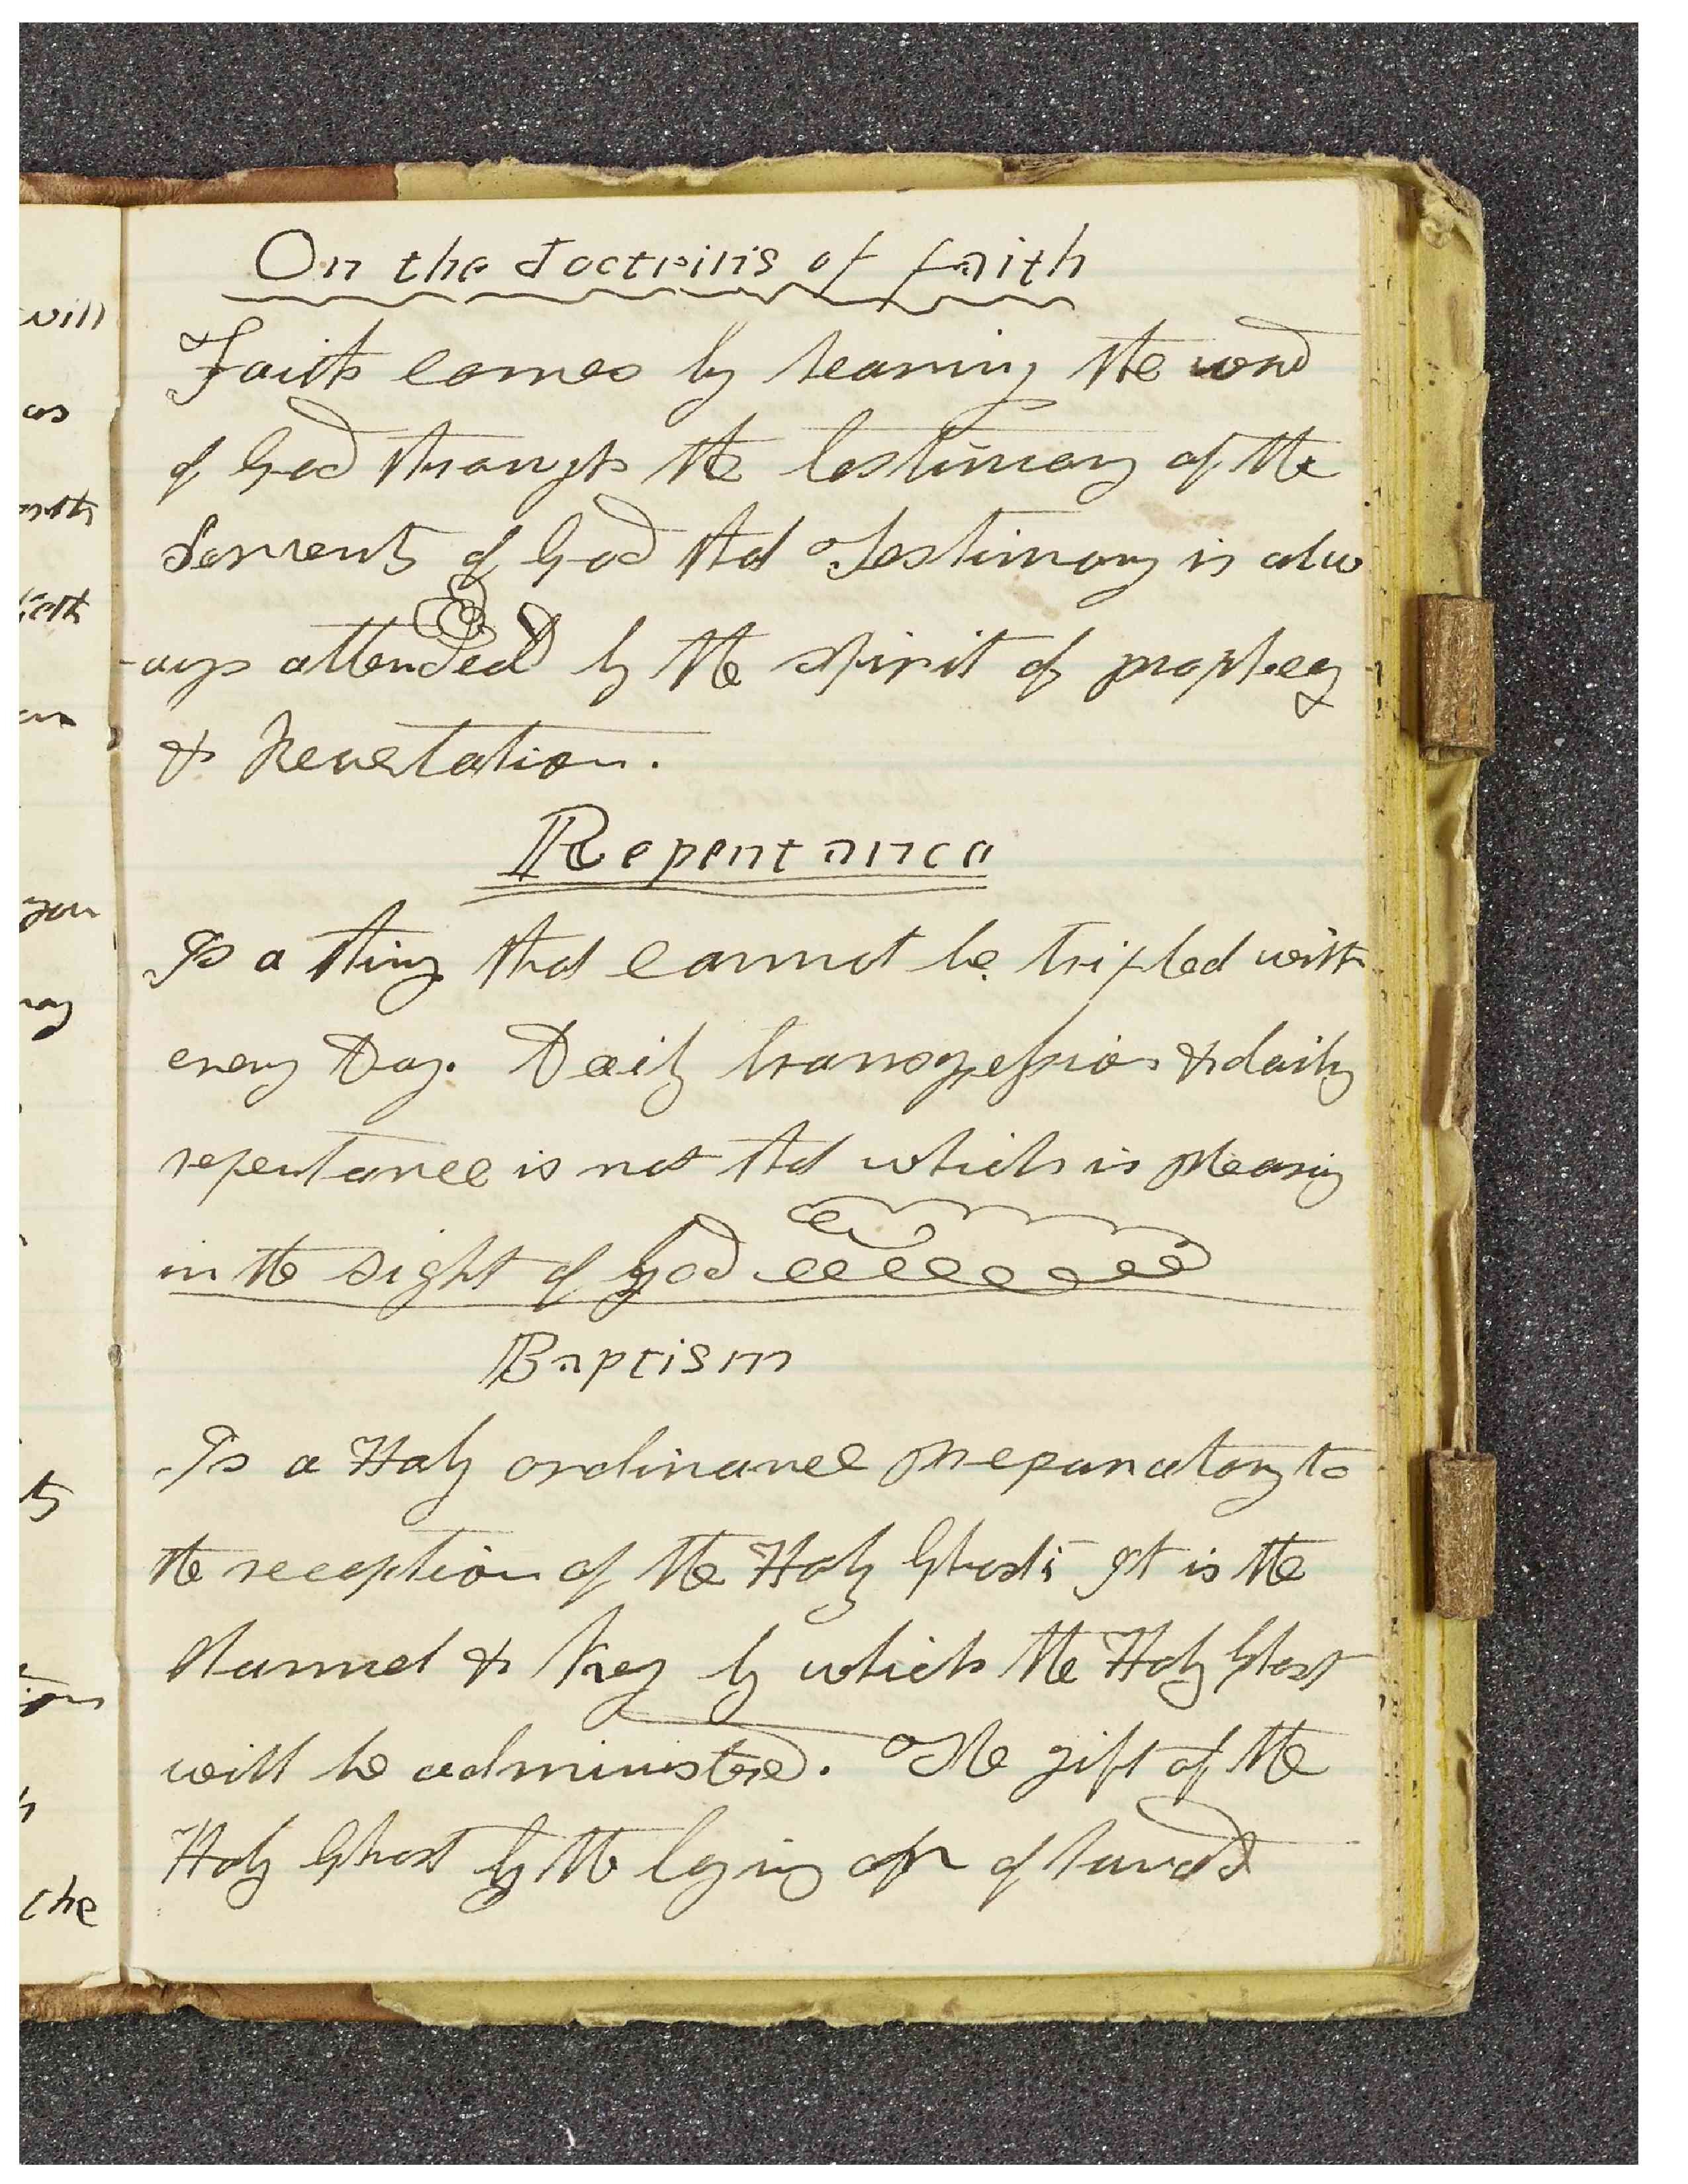 On the doctrins of faith
Faith comes by hearing the word
of God through the testimony of the
Servents of God that Testimony is alw
-ays attended by the spirit of prophecy
& Revelation.
Repentance
Is a thing that cannot be trifled with
every Day. Daily transgression & daily
repentance is not that which is pleasing
in the sight of God
Baptism
Is a Holy ordinance preparatory to
the reception of the Holy Ghost; It is the
channel & Key by which the Holy Ghost
will be administered. The gift of the
Holy Ghost by the laying on of hands
will
as
you
the